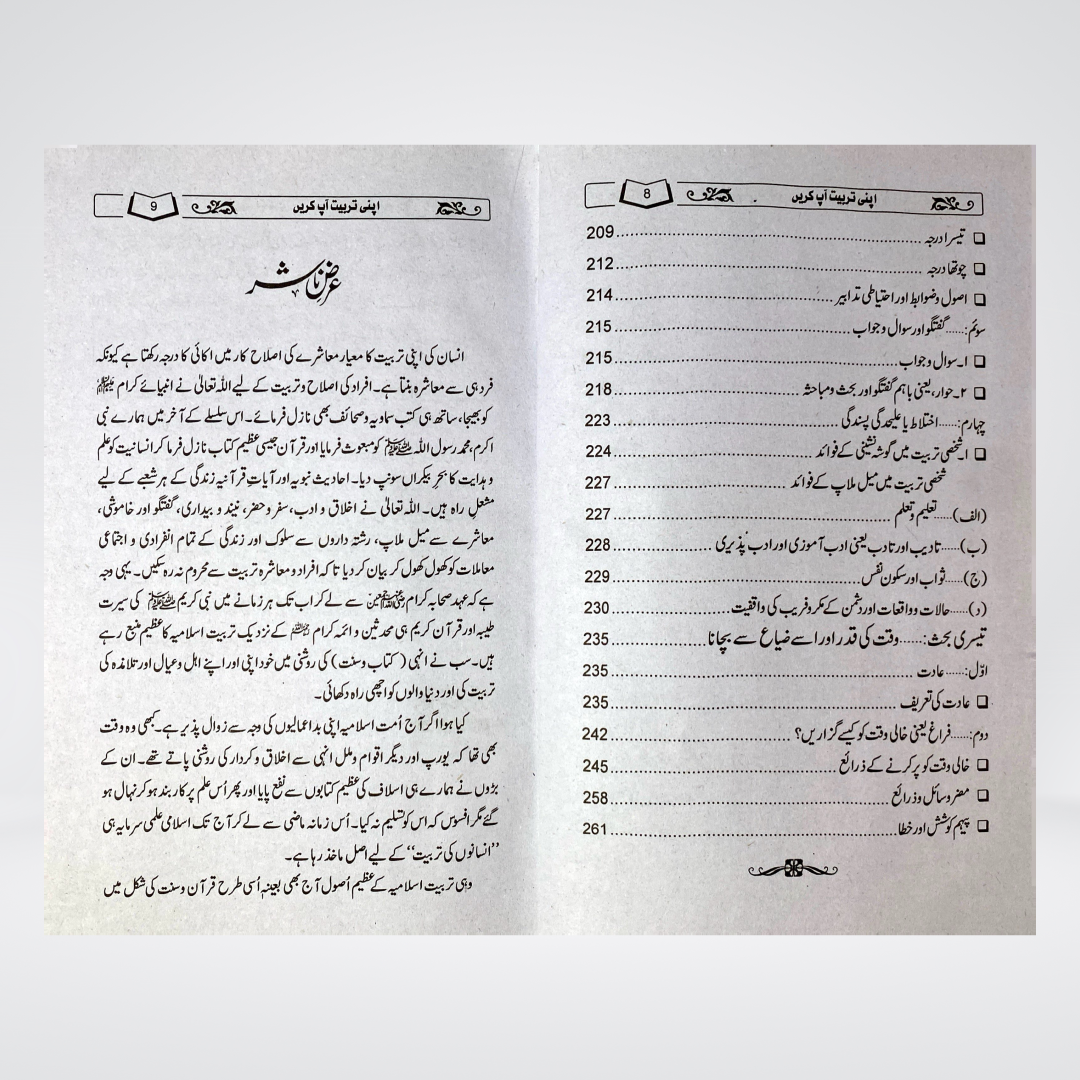 اپنی تربیت آپ کریں 8
❑ تیسرا درجہ ........ 209
❑ چوتھا درجہ ........ 212
❑ اصول وضوابط اور احتیاطی تدابیر ........ 214
سوئم:......گفتگو اور سوال و جواب ........ 215
❑ ۱۔سوال و جواب ........ 215
❑ ۲۔حوار، یعنی باہم گفتگو اور بحث و مباحثہ ........ 218
چہارم:......اختلاط یا علیحدگی پسندگی ........ 223
❑ ۱۔شخصی تربیت میں گوشہ نشینی کے فوائد ........ 224
شخصی تربیت میں میل ملاپ کے فوائد ........ 227
(الف)......تعلیم وتعلم ........ 227
(ب)......تادیب اور تادب یعنی ادب آموزی اور ادب پذیری ........ 228
(ج)......ثواب اور سکون نفس ........ 229
(د)......حالات و واقعات اور دشمن کے مکر و فریب کی واقفیت ........ 230
تیسری بحث:......وقت کی قدر اور اسے ضیاع سے بچانا ........ 235
اوّل:......عادت ........ 235
❑ عادت کی تعریف ........ 235
دوم:......فراغ یعنی خالی وقت کو کیسے گزاریں؟ ........ 242
❑ خالی وقت کو پر کرنے کے ذرائع ........ 245
❑ مضر وسائل و ذرائع ........ 258
❑ پیہم کوشش اور خطا ........ 261
اپنی تربیت آپ کریں 9
عرض ناشر
انسان کی اپنی تربیت کا معیار معاشرے کی اصلاح کار میں اکائی کا درجہ رکھتا ہے کیونکہ
فرد ہی سے معاشرہ بنتا ہے۔ افراد کی اصلاح و تربیت کے لیے اللہ تعالیٰ نے انبیائے کرام ﷺ
کو بھیجا، ساتھ ہی کتب سماویہ وصحائف بھی نازل فرمائے۔ اس سلسلے کے آخر میں ہمارے نبی
اکرم، محمد رسول اللہ ﷺ کو مبعوث فرمایا اور قرآن جیسی عظیم کتاب نازل فرما کر انسانیت کو علم
و ہدایت کا بحرِ بیکراں سونپ دیا۔ احادیث نبویہ اور آیاتِ قرآنیہ زندگی کے ہر شعبے کے لیے
مشعلِ راہ ہیں۔ اللہ تعالیٰ نے اخلاق و ادب، سفر و حضر، نیند و بیداری، گفتگو اور خاموشی،
معاشرے سے میل ملاپ، رشتہ داروں سے سلوک اور زندگی کے تمام انفرادی و اجتماعی
معاملات کو کھول کھول کر بیان کر دیا تاکہ افراد و معاشرہ تربیت سے محروم نہ رہ سکیں۔ یہی وجہ
ہے کہ عہد صحابہ کرام سے لے کر اب تک ہر زمانے میں نبی کریم ﷺ کی سیرت
طیبہ اور قرآن کریم ہی محدثین و ائمہ کرام کے نزدیک تربیت اسلامیہ کا عظیم منبع رہے
ہیں۔ سب نے انہی (کتاب وسنت) کی روشنی میں خود اپنی اور اپنے اہل وعیال اور تلامذہ کی
تربیت کی اور دنیا والوں کو اچھی راہ دکھائی۔
کیا ہوا اگر آج اُمت اسلامیہ اپنی بداعمالیوں کی وجہ سے زوال پذیر ہے۔ کبھی وہ وقت
بھی تھا کہ یورپ اور دیگر اقوام وملل انہی سے اخلاق و کردار کی روشنی پاتے تھے۔ ان کے
بڑوں نے ہمارے ہی اسلاف کی عظیم کتابوں سے نفع پایا اور پھر اُس علم پر کار بند ہو کر نہال ہو
گئے مگر افسوس کہ اس کو تسلیم نہ کیا۔ اُس زمانہ ماضی سے لے کر آج تک اسلامی علمی سرمایہ ہی
’’انسانوں کی تربیت‘‘ کے لیے اصل ماخذ رہا ہے۔
وہی تربیت اسلامیہ کے عظیم اُصول آج بھی بعینہٖ اُسی طرح قرآن وسنت کی شکل میں